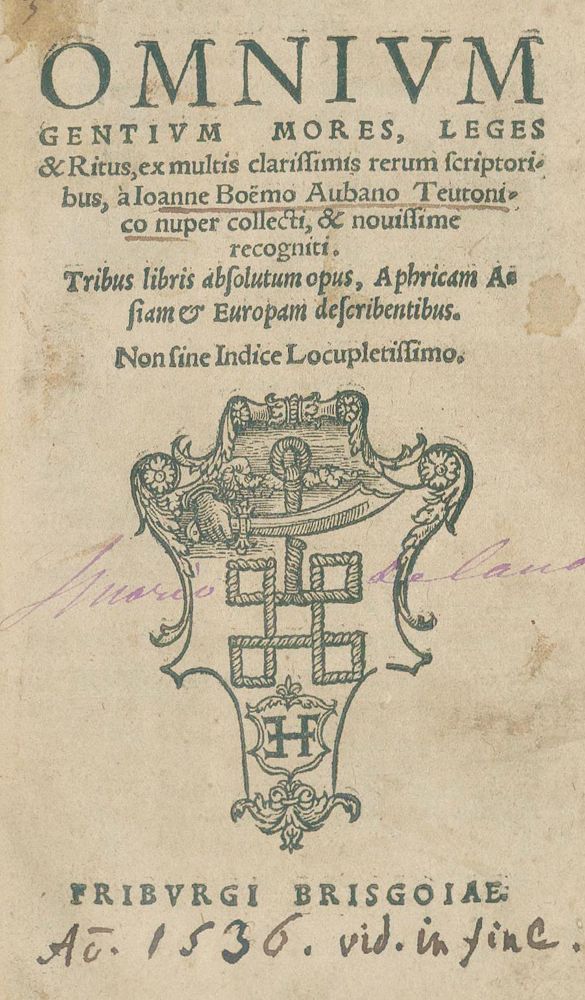 OMNIVM
GENTIVM MORES, LEGES
& Ritus, ex multis clarissimis rerum scriptori-
bus, à Ioanne Boëmo Aubano Teutoni-
co nuper collecti, & nouissime
recogniti.
Tribus libris absolutum opus, Aphricam A-
siam & Europam describentibus.
Non sine Indice Locupletissimo.
FRIBVRGI BRISGOIAE.
Aõ. 1536. vid. in fine.